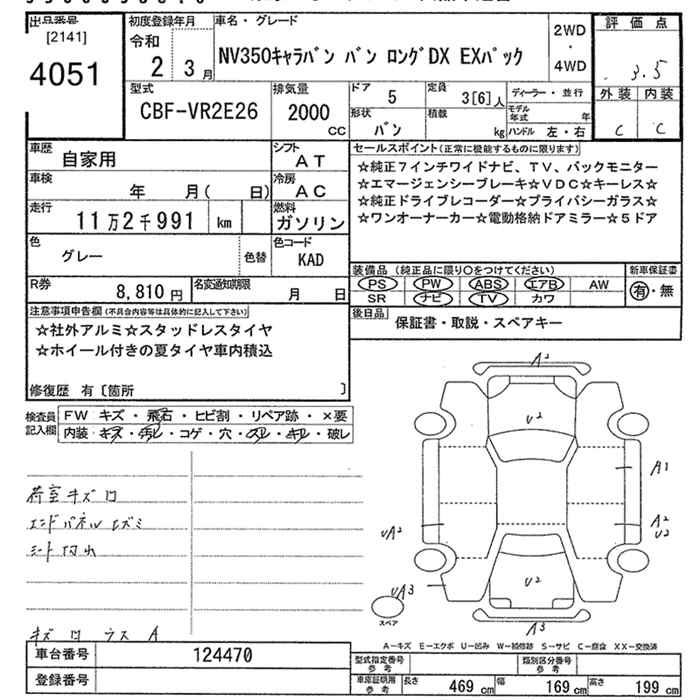 出品番号
[2141]
4051
初度登録年月
令和
2 3月
車名・グレード
NV350キャラバン バン ロングDX EXパック
2WD
・
4WD
評価点
3.5
外装 内装
C C
型式
CBF-VR2E26
排気量
2000
CC
ドア
5
定員
3[6]人
ディーラー・並行
形状
バン
積載
kg
モデル年式 年
ハンドル 左・右
車歴
自家用
シフト
AT
車検
年 月( 日)
冷房
AC
走行
11万2千991 km
燃料
ガソリン
色
グレー
色替
色コード
KAD
R券
8,810円
名変通知期限
月 日
セールスポイント(正常に機能するものに限ります)
☆純正7インチワイドナビ、TV、バックモニター
☆エマージェンシーブレーキ☆VDC☆キーレス☆
☆純正ドライブレコーダー☆プライバシーガラス☆
☆ワンオーナーカー☆電動格納ドアミラー☆5ドア
装備品(純正品に限り○をつけてください)
新車保証書
PS PW ABS エアB AW
SR ナビ TV カワ
有・無
後日品
保証書・取説・スペアキー
注意事項申告欄(不具合内容等は具体的に記入して下さい)
☆社外アルミ☆スタッドレスタイヤ
☆ホイール付きの夏タイヤ車内積込
修復歴 有〔箇所 〕
検査員記入欄
FW キズ・飛石・ヒビ割・リペア跡・×要
内装:キズ・汚レ・コゲ・穴・スレ・キレ・破レ
荷室キズ凹
エンドパネルヒズミ
シート汚れ
キズ凹 ラス A
A2
U2
A1
A2
U2
UA2
UA3
U2
A3
スペア
A－キズ E－エクボ U－凹み W－補修跡 S－サビ C－腐食 XX－交換済
車台番号
124470
登録番号
型式指定番号
参考
類別区分番号
参考
車庫証明用
参考
長さ 469 cm 幅 169 cm 高さ 199 cm